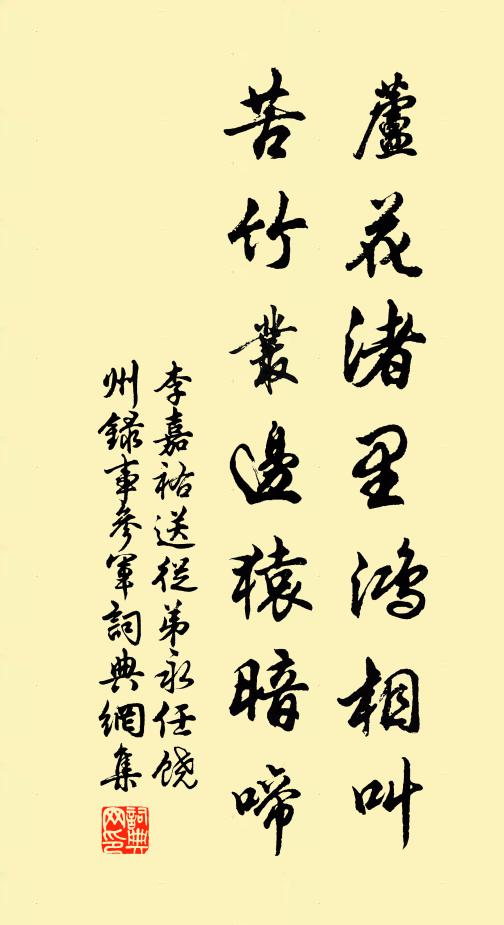 蘆花渚里鴻相叫
苦竹叢邊猿暗啼
李嘉祐送從弟永任饒
州錄事參軍詞典網集
詞典
网印